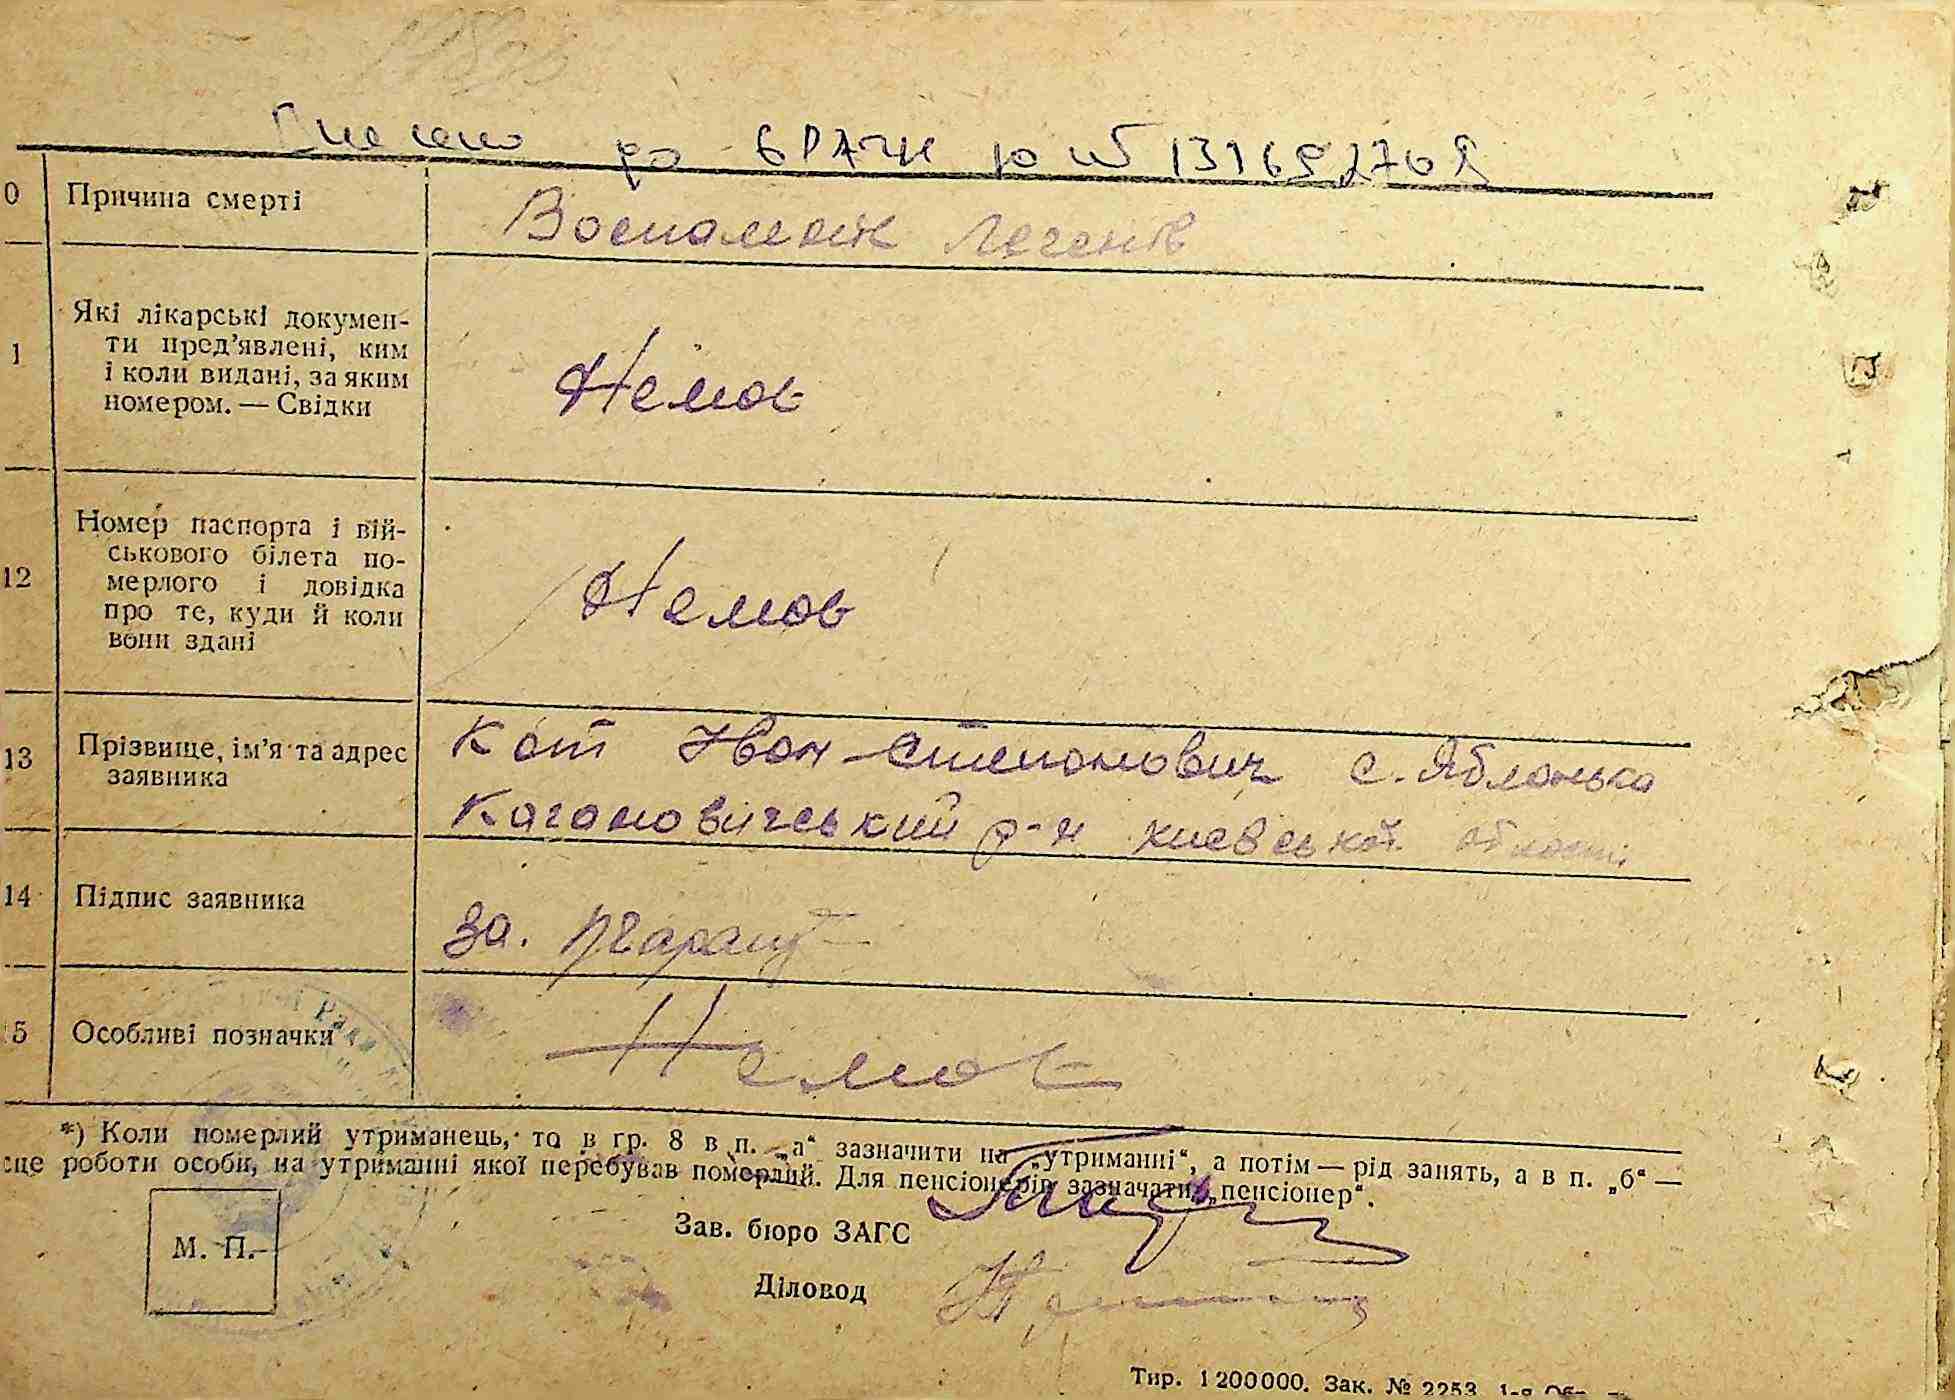 Внесено до ДРАЦС
0 Причина смерті
Воспаленія легенів
1 Які лікарські докумен-
ти пред’явлені, ким
і коли видані, за яким
номером. — Свідки
Немає
12 Номер паспорта і вій-
ськового білета по-
мерлого і довідка
про те, куди й коли
вони здані
Немає
13 Прізвище, ім’я та адрес
заявника
Кот Іван Степанович с. Яблонька
Кагановичський р-н київської області
14 Підпис заявника
за.
5 Особливі позначки
Немає
*) Коли померлий утриманець, то в гр. 8 в п. „а“ зазначити на „утриманні“, а потім — рід занять, а в п. „б“ —
сце роботи особи, на утриманні якої перебував померлий. Для пенсіонерів зазначати „пенсіонер“.
М. П.
Зав. бюро ЗАГС
Діловод
Тир. 1200000. Зак. № 2253.